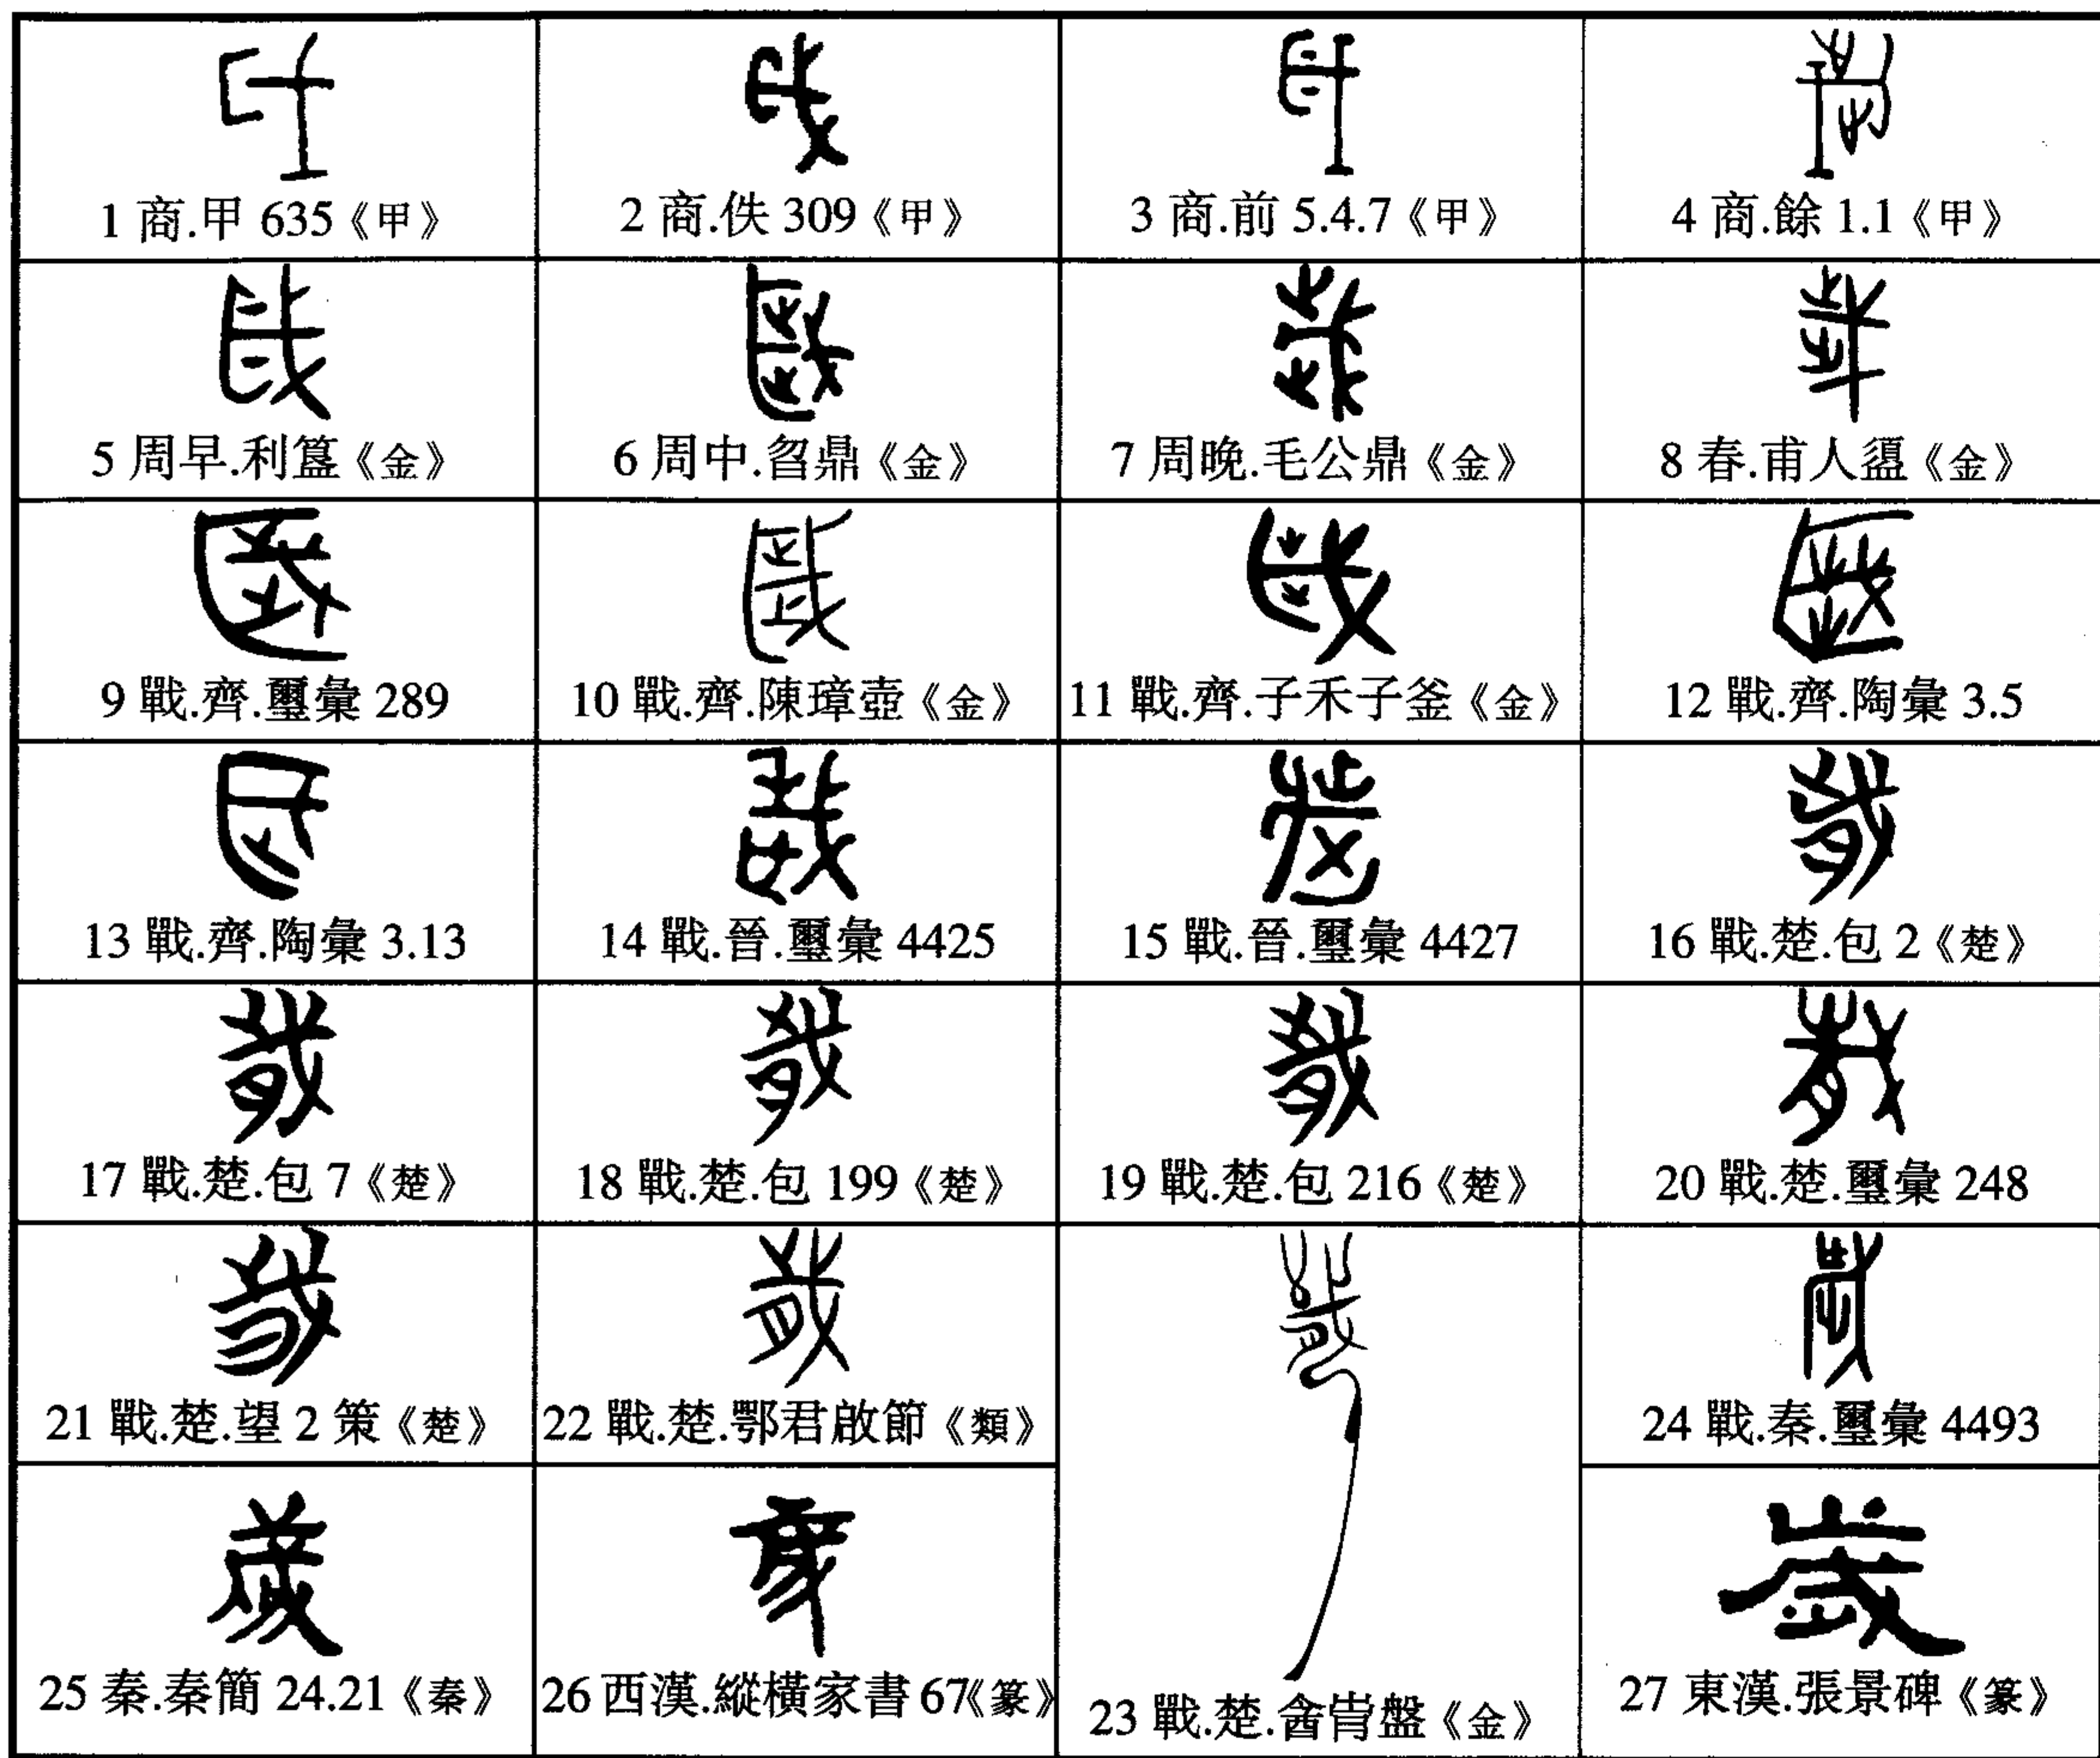 1 商.甲 635《甲》
2 商.佚 309《甲》
3 商.前 5.4.7《甲》
4 商.餘 1.1《甲》
5 周早.利簋《金》
6 周中.曶鼎《金》
7 周晚.毛公鼎《金》
8 春.甫人盨《金》
9 戰.齊.璽彙 289
10 戰.齊.陳璋壺《金》
11 戰.齊.子禾子釜《金》
12 戰.齊.陶彙 3.5
13 戰.齊.陶彙 3.13
14 戰.晉.璽彙 4425
15 戰.晉.璽彙 4427
16 戰.楚.包 2《楚》
17 戰.楚.包 7《楚》
18 戰.楚.包 199《楚》
19 戰.楚.包 216《楚》
20 戰.楚.璽彙 248
21 戰.楚.望 2 策《楚》
22 戰.楚.鄂君啟節《類》
23 戰.楚.酓肯盤《金》
24 戰.秦.璽彙 4493
25 秦.秦簡 24.21《秦》
26 西漢.縱橫家書 67《篆》
27 東漢.張景碑《篆》